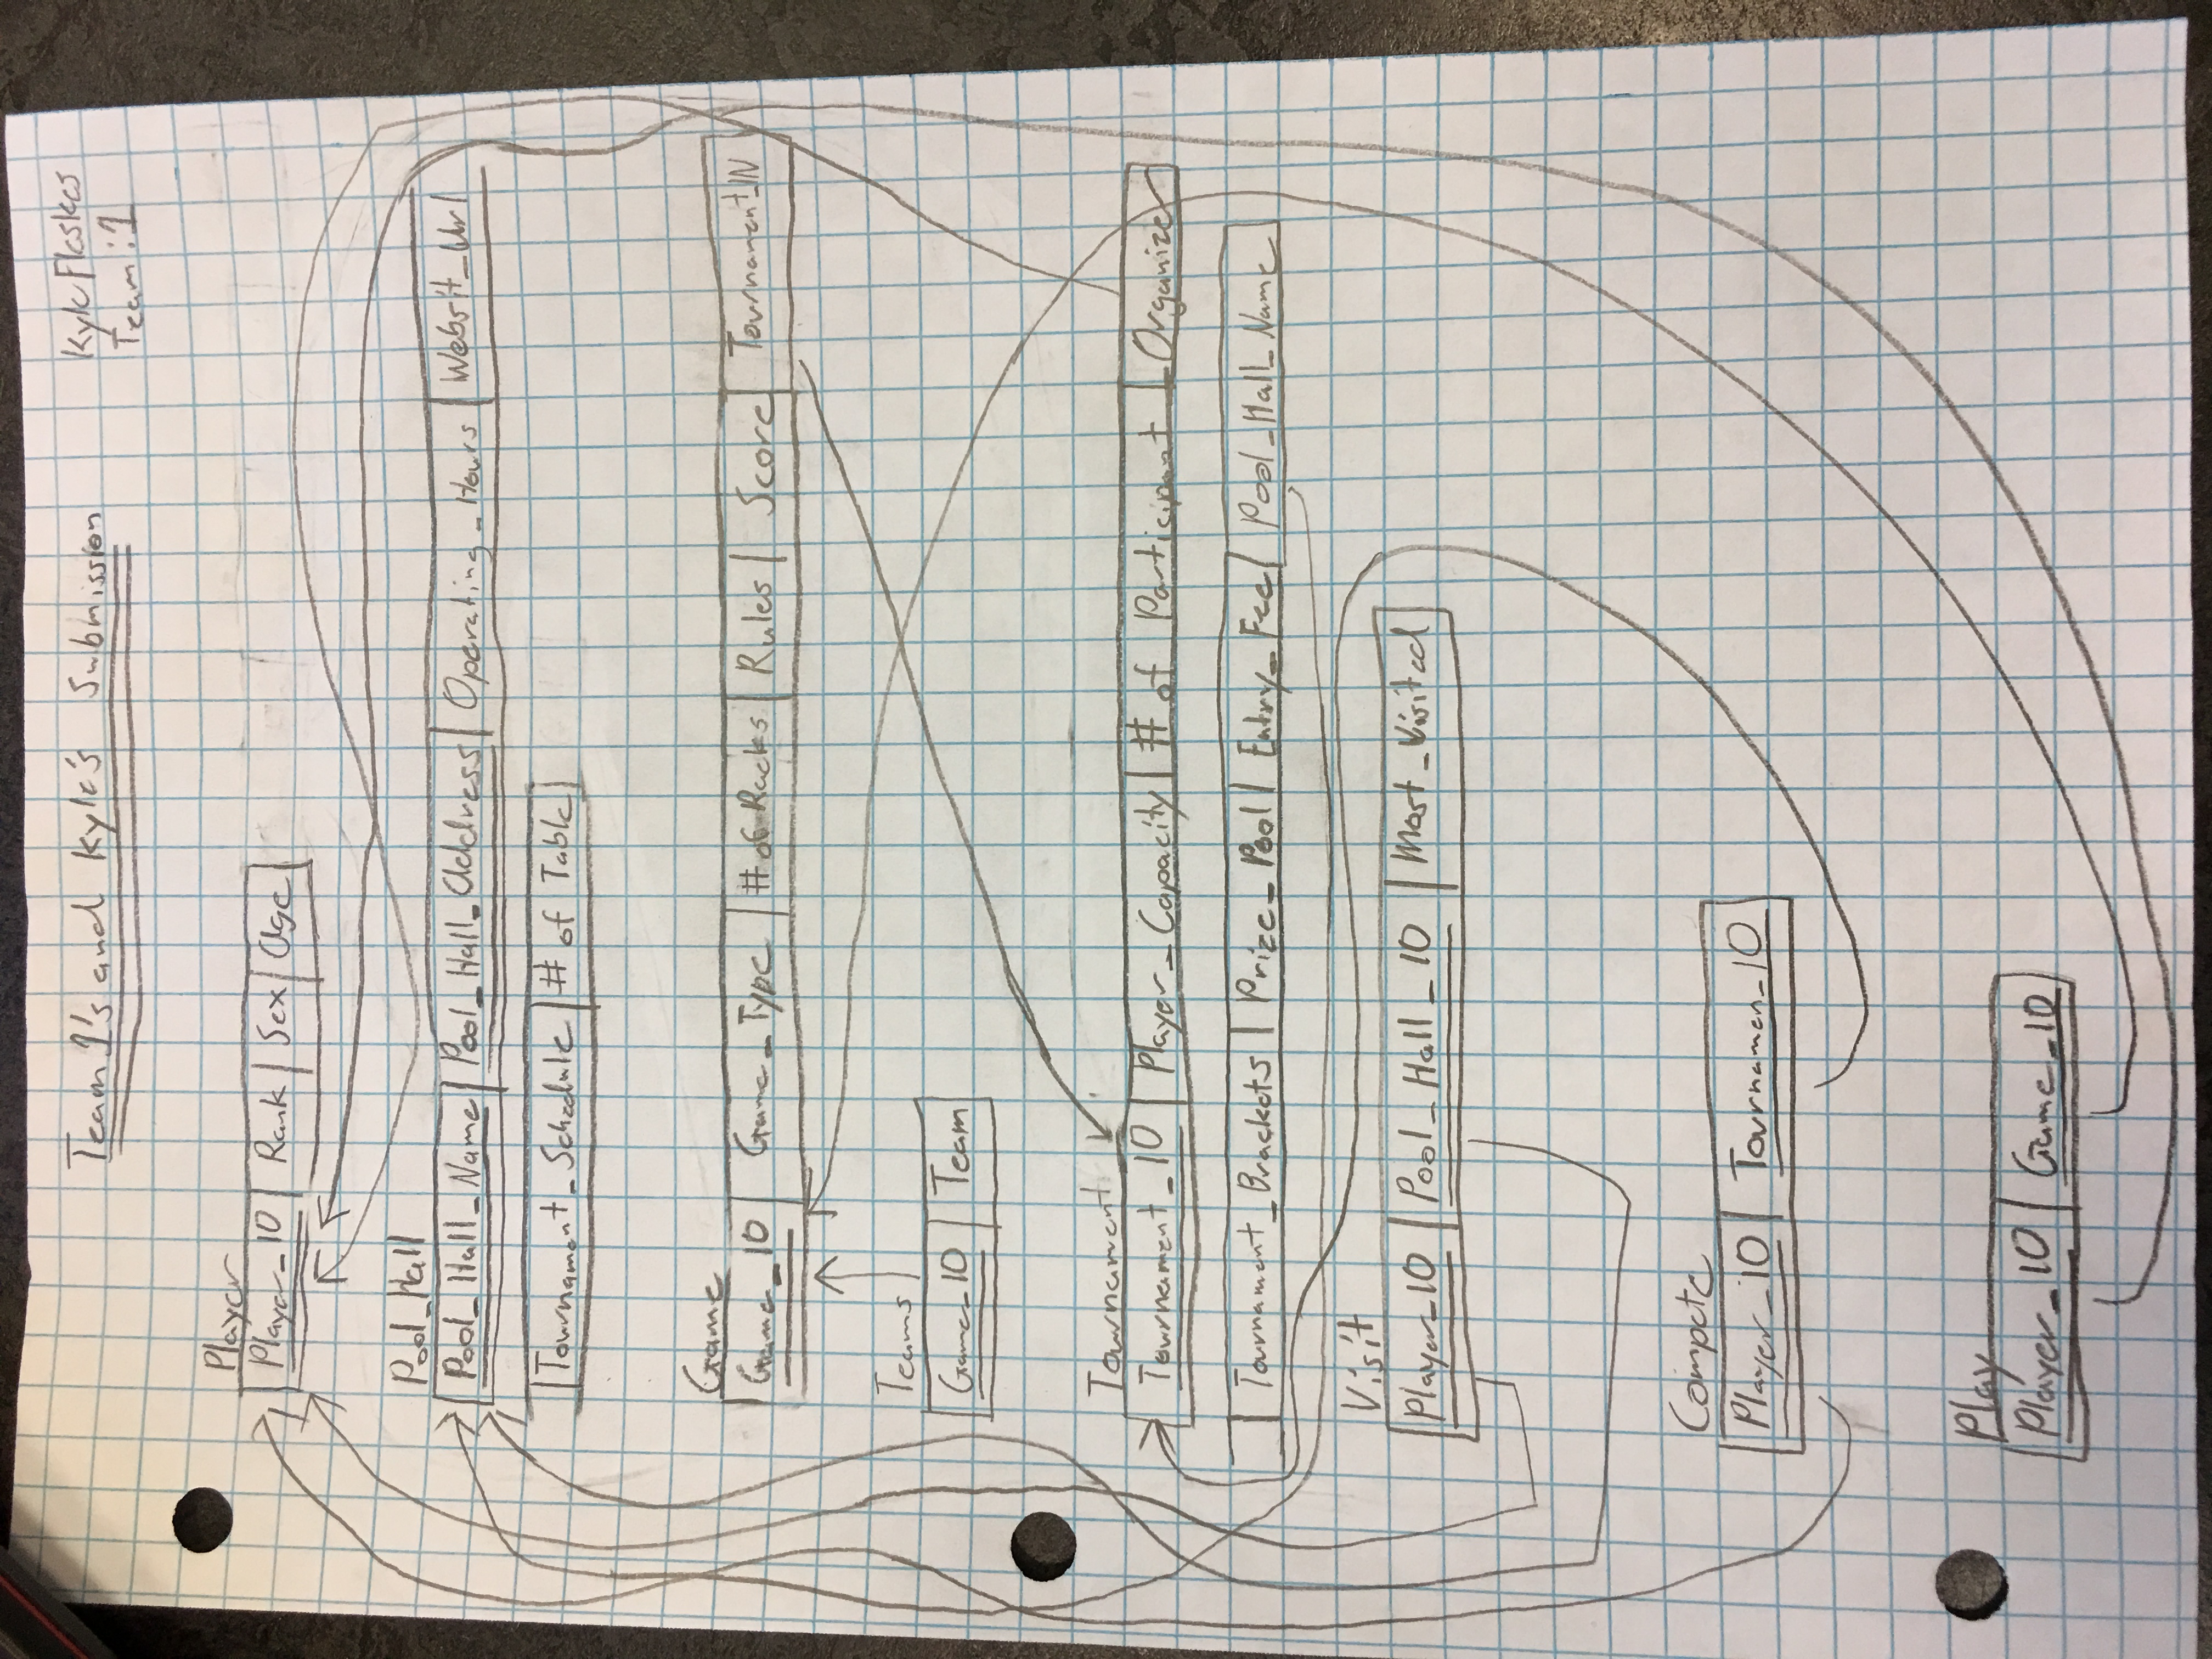 Team 1's and Kyle's Submission
Kyle Fleskes
Team: 1
Player
Player_ID Rank Sex Age
Pool_Hall
Pool_Hall_Name Pool_Hall_Address Operating_Hours Websit_Url
Tournament_Schedule # of Table
Game
Game_ID Game_Type # of Racks Rules Score Tournament_IN
Teams
Game_ID Team
Tournament
Tournament_ID Player_Capacity # of Participant Organizer
Tournament_Brackets Prize_Pool Entry_Fee Pool_Hall_Name
Visit
Player_ID Pool_Hall_ID Most_Visited
Compete
Player_ID Tournamen_ID
Play
Player_ID Game_ID